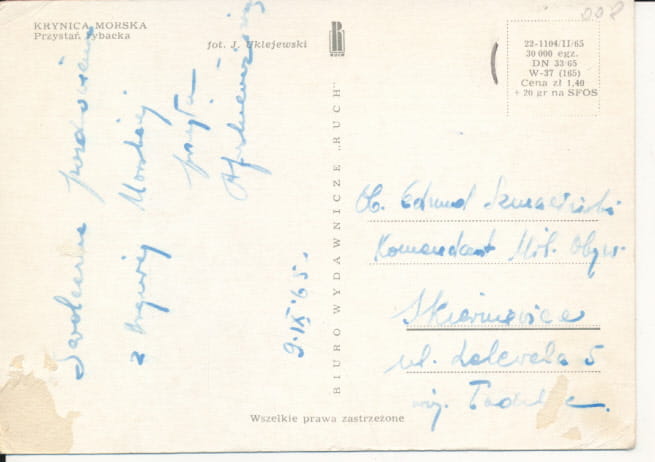 KRYNICA MORSKA
Przystań rybacka
fot. J. Uklejewski
RUCH
22-1104/II/65
30 000 egz.
DN 33/65
W-37 (165)
Cena zł 1,40
+ 20 gr na SFOS
BIURO WYDAWNICZE „RUCH"
Serdeczne pozdrowienia
z Krynicy Morskiej
9.IX.65.
Ob. Edmund
Komendant Mil. Obyw.
Skierniewice
ul. 5
woj.
Wszelkie prawa zastrzeżone